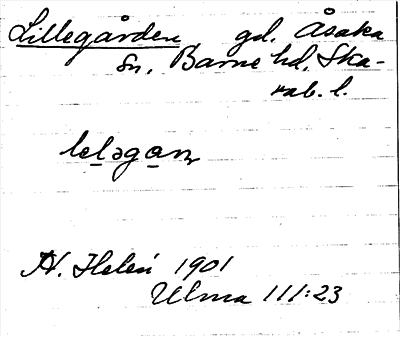 Lillegården gd. Åsaka
sn, Barne hd, Ska-
rab. l.
A. Helén 1901
Ulma 111:23